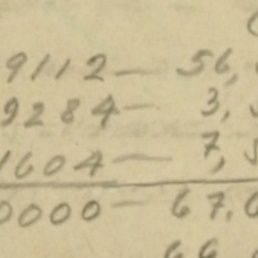 9112 — 56,
9284 — 3,
1604 — 7,
0000 — 67.0
66